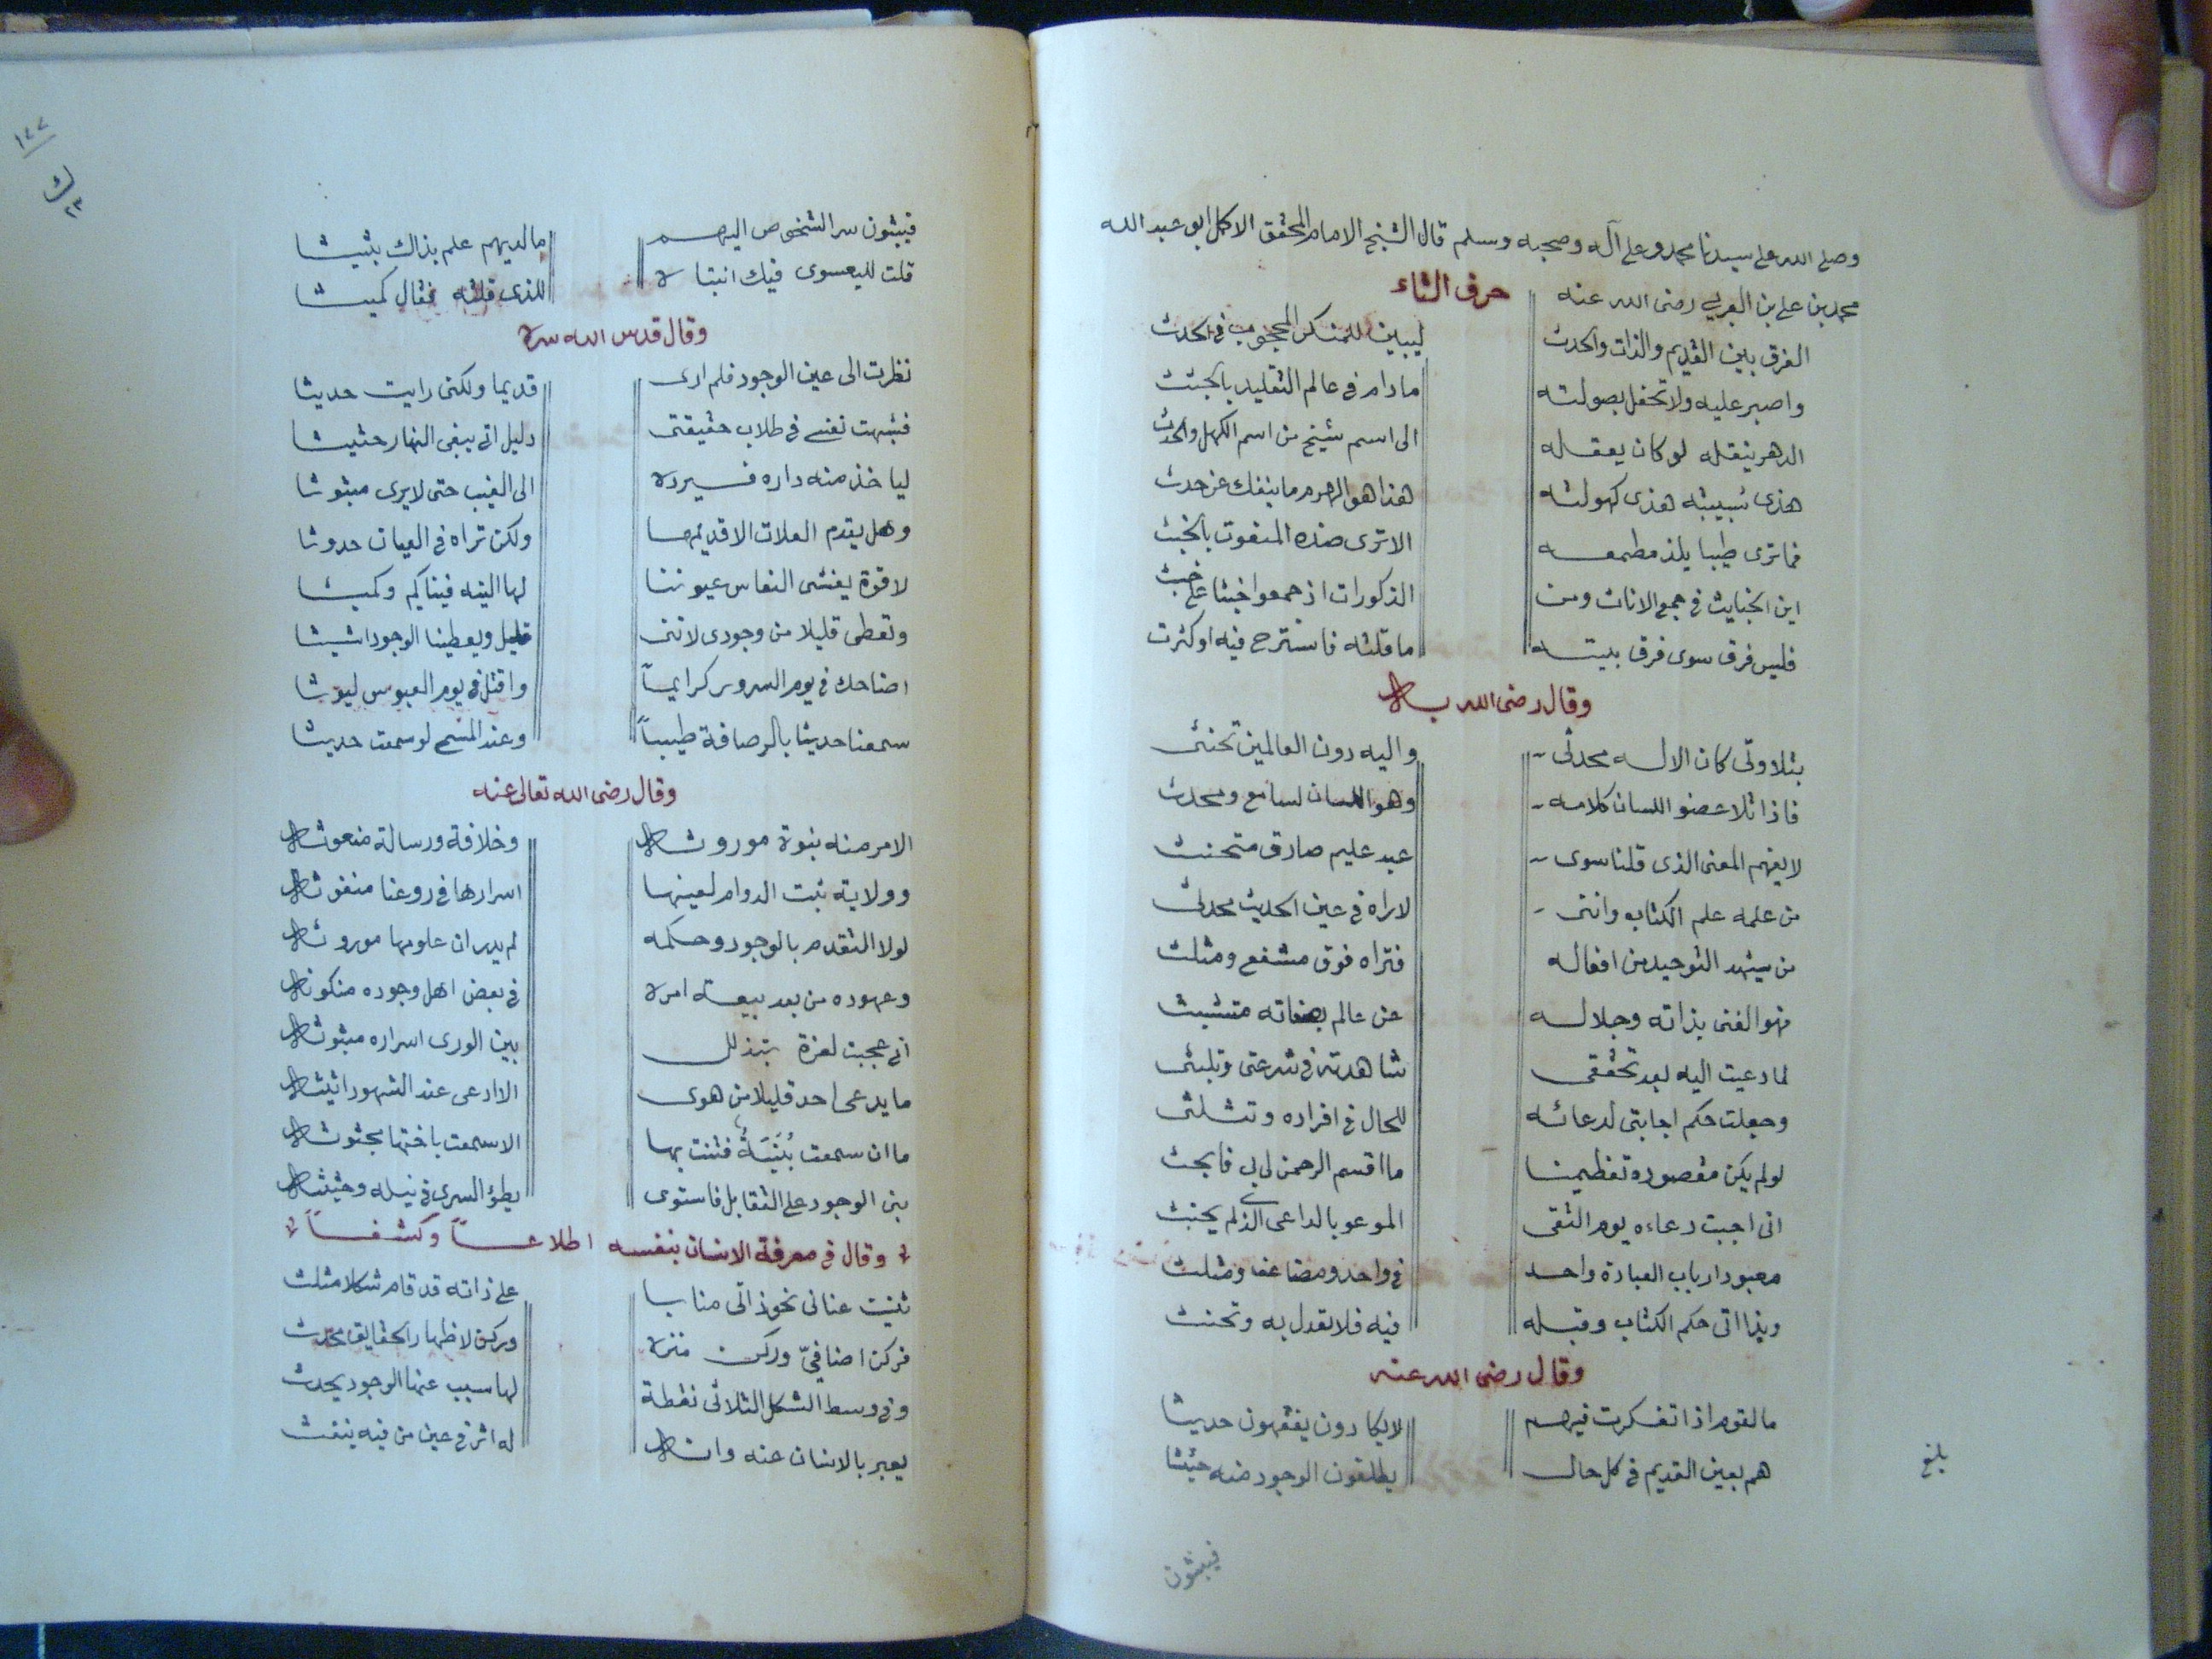 وصلى الله على سيدنا محمد وعلى آله وصحبه وسلم قال الشيخ الامام المحقق الاكمل ابو عبد الله
محمد بن على بن العربي رضى الله عنه حرف الثاء
الفرق بين القديم والذات والحدث ليبين للمنكر المحجوب في الحدث
واصبر عليه ولا تحفل بصولته مادام في عالم التقليد بالجثث
الدهر ينقله لو كان يعقله الى اسم شيخ من اسم الكهل والحدث
هذى شبيبته هذى كهولته هذا هو الهرم ما ينفك عن حدث
فما ترى طيبا يلذ مطعمه الا ترى ضده المنعوت بالخبث
اين الخبايث في جمع الاناث ومن الذكورات اذ جمعوا خبثا على خبث
فليس فرق سوى فرق بديته ما قلته فاسترح فيه او كترث
وقال رضى الله
بتلاوتى كان الاله محدثى واليه دون العالمين تحنثى
فاذا تلا عضو اللسان كلامه وهو اللسان لسامع ومحدث
لا يفهم المعنى الذى قلنا سوى عبد عليم صادق متحنث
من علمه علم الكتاب واننى لاراه في عين الحديث محدثى
من يشهد التوحيد من افعاله فتراه فوق مشفع ومثلث
فهو الغنى بذاته وجلاله عن عالم بصفاته متشبث
لما دعيت اليه بعد تحققى شاهدته في شرعتى وتلبثى
وجعلت حكم اجابتى لدعائه للحال في افراده وتثلثى
لو لم يكن مقصوده تعظيمنا ما اقسم الرحمن لى بى فابحث
انى اجبت دعاءه يوم التقى المدعو بالداعى الذى لم يحنث
معبود ارباب العبادة واحد في واحد ومضاعف ومثلث
وبذا اتى حكم الكتاب وقبله فيه فلا تعدل به وتحنث
وقال رضى الله عنه
ما لقوم اذا تفكرت فيهم لا يكادون يفقهون حديثا
هم بعين القديم في كل حال يطلبون الوجود منه حثيثا
بلغ
فيبثون
فيبثون سر الشخوص اليهم ما لديهم علم بذاك بثيثا
قلت لليعسوى فيك انبتا للذى قلته فقال كميثا
وقال قدس الله سره
نظرت الى عين الوجود فلم ارى قديما ولكنى رايت حديثا
فشبهت نفسى في طلاب حقيقتى دليل اتى يبغى النهار حثيثا
لياخذ منه داره فيرده الى الغيب حتى لا يرى مبثوثا
وهل يقدم العلات الا قديمها ولكن تراه في العيان حدوثا
لا قوة يغشى النعاس عيوننا لها التيه فينا كم وكميثا
وتعطى قليلا من وجودى لاننى قليل ويعطينا الوجود اثيثا
اضاحك في يوم السرور كرايماً واقتل في يوم العبوس ليوثا
سمعنا حديثا بالرصافة طيباً وعند المسح لو سمعت حديثا
وقال رضى الله تعالى عنه
الامر منه بنوة موروثه وخلافة ورسالة منعوثه
وولاية ثبت الدوام لعينها اسرارها في روعنا منفوثه
لولا التقدم بالوجود وحكمه لم يدر ان علومها موروثه
وعهوده من بعد بيعة امره في بعض اهل وجوده منكوثه
انى عجبت لعزة بتذلل بين الورى اسراره مبثوثه
ما يدعى احد قليلا من هوى الا ادعى عند الشهود اثيثه
ما ان سمعت بُثَينَةٌ فتنت بها الا سمعت باختها مجثوثه
بنى الوجود على التقابل فاستوى بطؤ السرى في نيله وحثيثه
وقال في معرفة الانسان بنفسه اطلاعاً وكشفاً
ثنيت عنانى نحو ذاتى منابا على ذاته قد قام شكلا مثلث
فركن اضافيّ وركن منزه وركن لاظهار الحقايق محدث
وفي وسط الشكل الثلاثى نقطة لها سبب عنها الوجود يحدث
يعبر بالانسان عنه وانه له اثر في عين من فيه ينفث
١٤٧